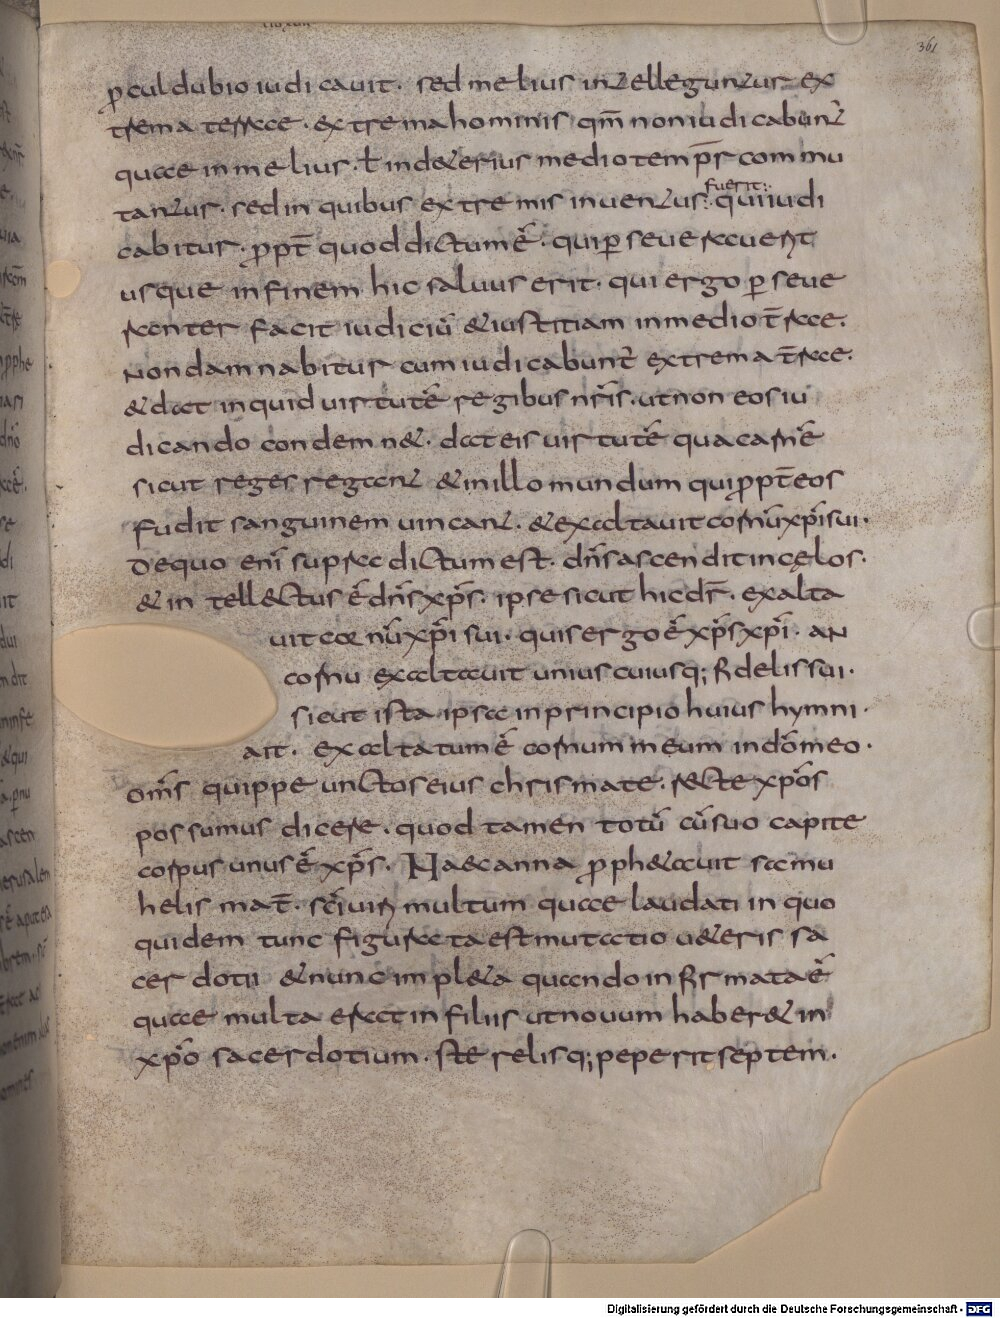 361
ꝓculdubio iudicauit. sed melius intelleguntur ex
trema terrae. extrema hominis qm̄ non iudicabunt̄
quae in melius. ł in deterius medio temp̄r commu
tantur. sed in quibus extremis inuentus fuerit: qui iudi
cabitur. ꝓpt̄ quod dictum ē. qui ꝑseuerauerit
usque in finem hic saluus erit. qui ergo ꝑseue
ranter facit iudiciū & iustitiam in medio t̄rae.
Non damnabitur cum iudicabunt̄ extrema t̄rae.
& dat inquid uirtutē regibus nr̄is. ut non eos iu
dicando condemn&. dat eis uirtutē qua carnē
sicut reges regant & in illo mundum qui ꝓpt̄ eos
fudit sanguinem uincant. & exaltauit cornū xp̄i sui.
De quo eni᷄ supra dictum est. dn̄s ascendit in cęlos.
& intellectus ē dn̄s xp̄s. ipse sicut hic dr̄. exalta
uit cornū xp̄i sui. quis ergo ē xp̄s xp̄i. an
cornu exaltauit unius cuiusq; fidelis sui.
sicut ista ipsa in principio huius hymni.
ait. exaltatum ē cornum meum in dō meo.
om̄s quippe unctos eius chrismate. recte xp̄os
possumus dicere. quod tamen totū cū suo capite
corpus unus ē xp̄s. Haec anna ꝓph&auit samu
helis mat̄. sc̄i uiri multum quae laudati in quo
quidem tunc figurata est mutatio u&eris sa
cerdotii & nunc impl&a quando infirmata ē
quae multa erat in filiis ut nouum haber& in
xp̄o sacerdotium. sterelisq; peperit septem.
Digitalisierung gefördert durch die Deutsche Forschungsgemeinschaft - DFG